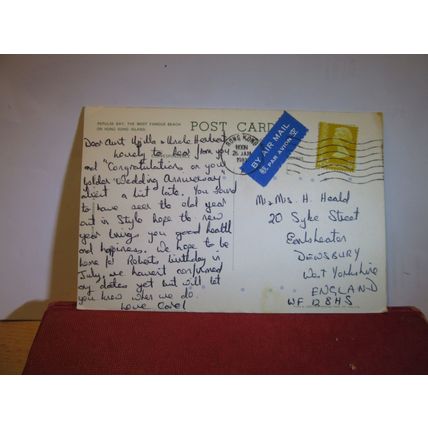 REPULSE BAY, THE MOST FAMOUS BEACH
ON HONG KONG ISLAND.
POST CARD
Dear Aunt & Uncle Herbert
Lovely to hear from you
and "Congratulations on your
Golden Wedding Anniversary"
albeit a bit late. You seemed
to have seen the old year
out in Style hope the new
year brings you good health
and happiness. We hope to be
home for Roberts birthday in
July, we havent confirmed
any dates yet but will let
you know when we do.
Love Carol
HONG KONG
BY AIR MAIL
PAR AVION 航空
Mr. Mrs. H. Heald
20 Syke Street
Earlsheaton
DEWSBURY
West Yorkshire
ENGLAND
WF 12 8HS